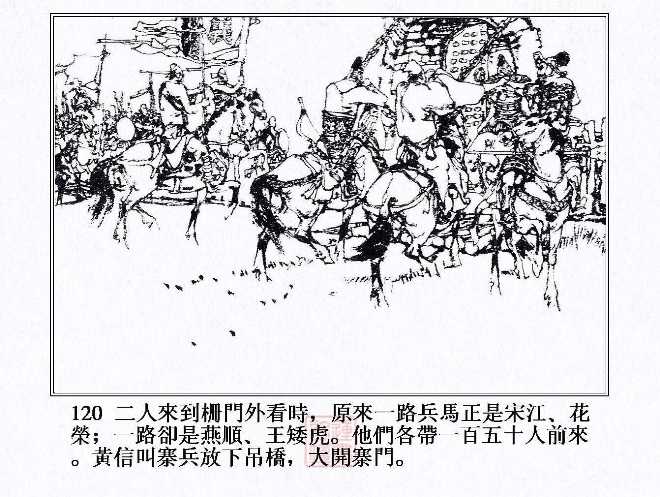 120 二人來到栅門外看時，原來一路兵馬正是宋江、花
榮；一路卻是燕順、王矮虎。他們各帶一百五十人前來
。黃信叫寨兵放下吊橋，大開寨門。